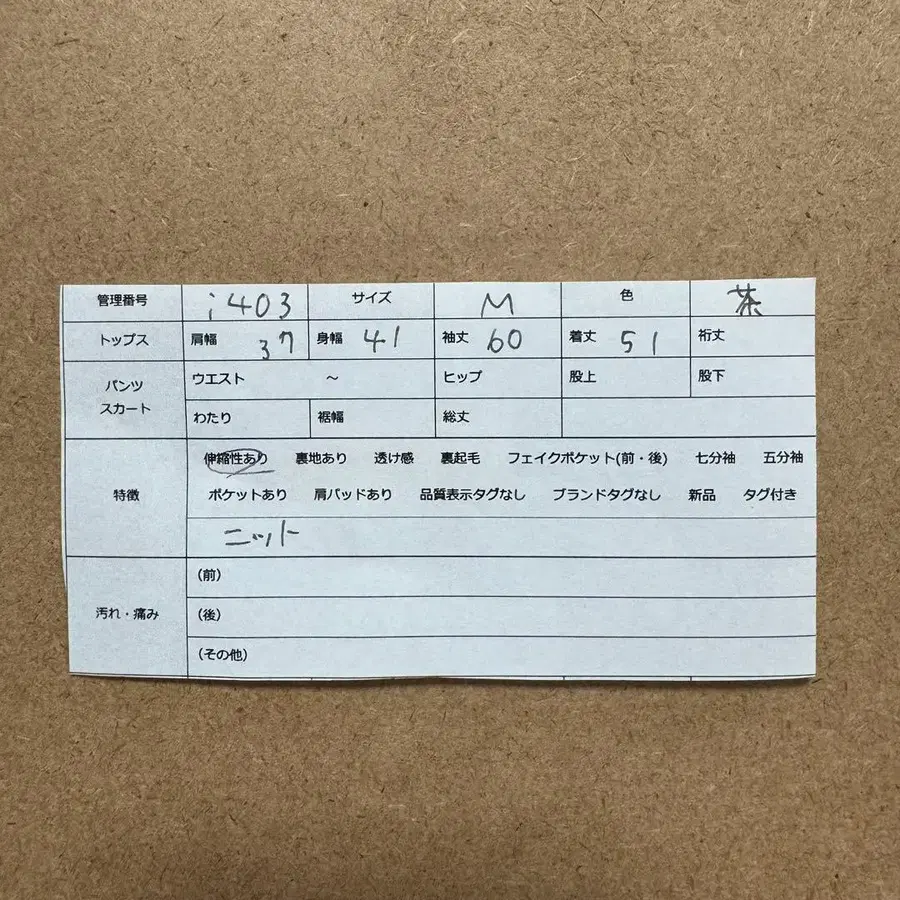 管理番号 i403 サイズ M 色 茶
トップス 肩幅 37 身幅 41 袖丈 60 着丈 51 裄丈
パンツ スカート ウエスト ～ ヒップ 股上 股下
わたり 裾幅 総丈
特徴 伸縮性あり 裏地あり 透け感 裏起毛 フェイクポケット(前・後) 七分袖 五分袖
ポケットあり 肩パッドあり 品質表示タグなし ブランドタグなし 新品 タグ付き
ニット
汚れ・痛み (前)
(後)
(その他)